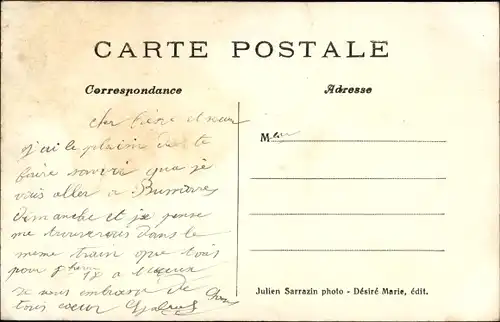 CARTE POSTALE
Correspondance
Adresse
cher frère et sœur
j'ai le plaisir de te
faire savoir que je
vais aller a
dimanche et je pense
me trouverons dans le
meme train que tois
pour 8 heure
je vous embrasse de
tous cœur
M
Julien Sarrazin photo - Désiré Marie, édit.